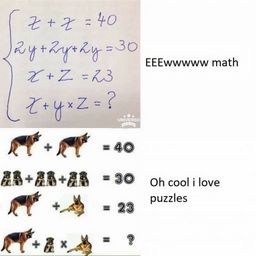 x + x = 40
2y + 2y + 2y = 30
x + z = 23
x + y x z = ?
EEEwwwww math
+ = 40
+ + = 30
+ = 23
+ x = ?
Oh cool i love
puzzles